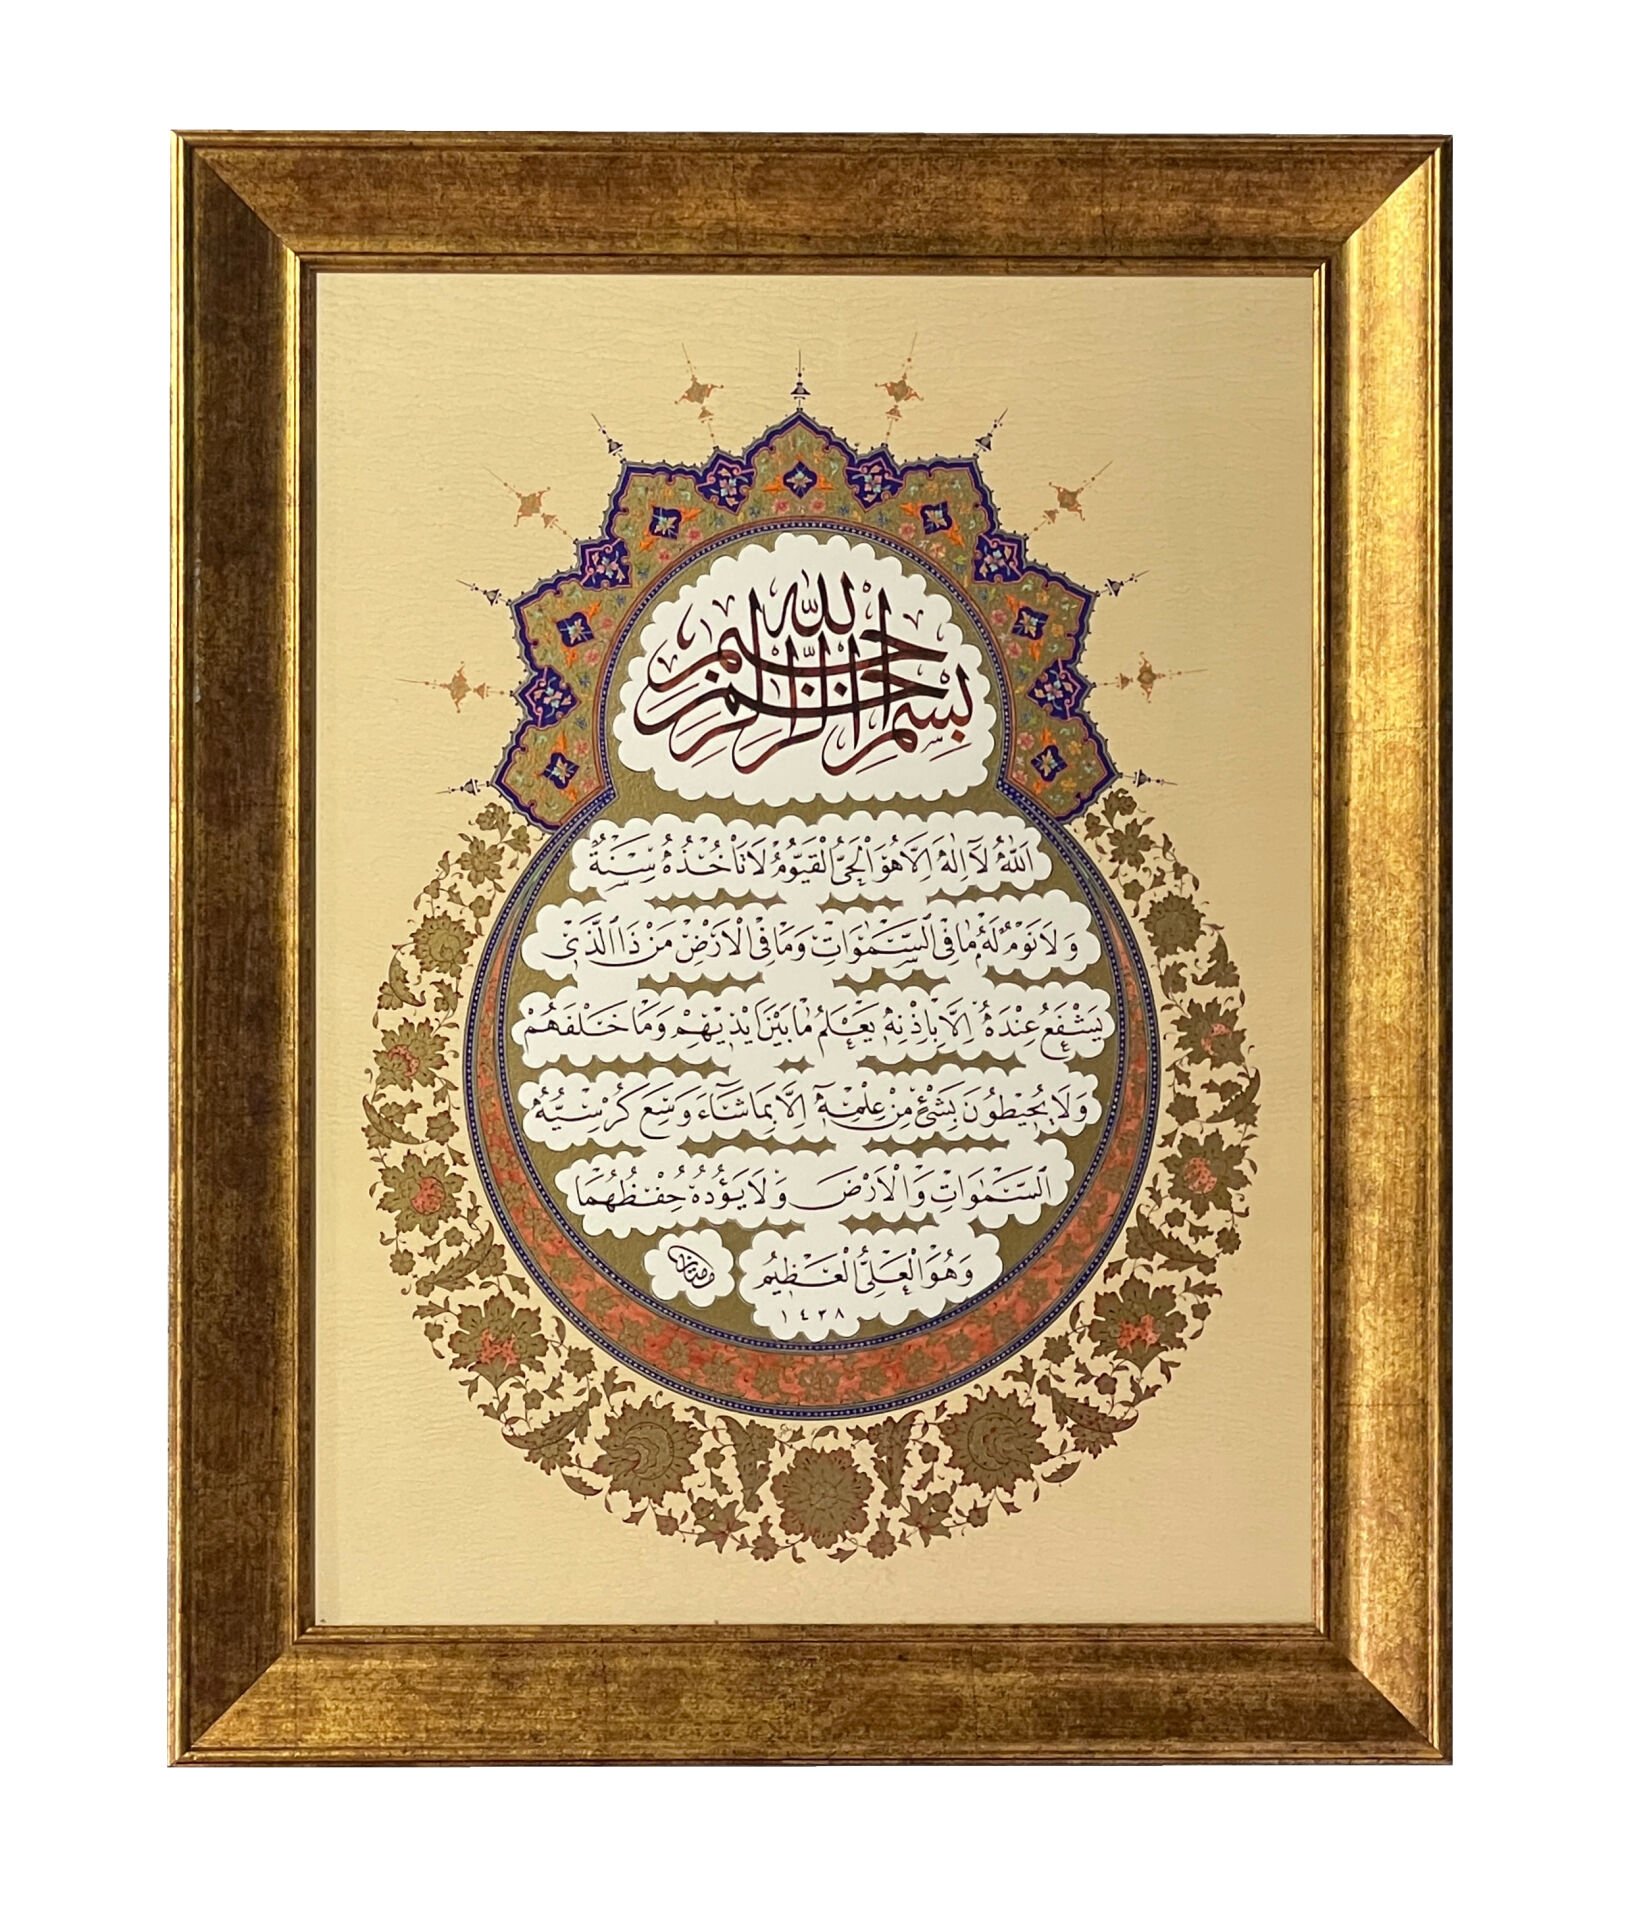 بسم الله الرحمن الرحيم
اَللّٰهُ لَٓا اِلٰهَ اِلَّا هُوَ الْحَيُّ الْقَيُّومُ لَا تَأْخُذُهُ سِنَةٌ
وَلَا نَوْمٌ لَهُ مَا فِي السَّمٰوَاتِ وَمَا فِي الْاَرْضِ مَنْ ذَا الَّذٖي
يَشْفَعُ عِنْدَهُ اِلَّا بِاِذْنِهٖ يَعْلَمُ مَا بَيْنَ اَيْدٖيهِمْ وَمَا خَلْفَهُمْ
وَلَا يُحٖيطُونَ بِشَيْءٍ مِنْ عِلْمِهٖٓ اِلَّا بِمَا شَٓاءَ وَسِعَ كُرْسِيُّهُ
السَّمٰوَاتِ وَالْاَرْضَ وَلَا يَؤُدُهُ حِفْظُهُمَا
وَهُوَ الْعَلِيُّ الْعَظٖيمُ
١٤٣٨